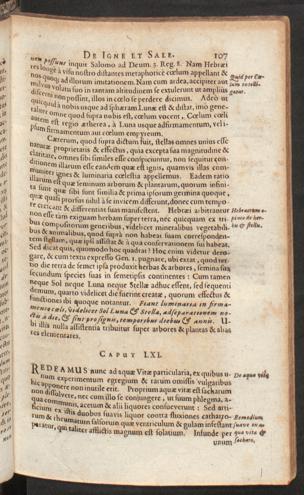 DE IGNE ET SALE. 107
non possunt inquit Salomo ad Deum. 3. Reg. 8. Nam Hebræi
res longè à visu nostro distantes metaphoricè cœlum appellant &
nos quoque ad illorum imitationem. Nam cum ardea, accipiter aut
milvus volatu suo in tantam altitudinem se extulerunt ut amplius
discerni non possint, illos in cœlo se perdere dicimus. Adeò ut
quicquid à nobis usque ad sphæram Lunæ est & distat, imò gene-
raliter omne quod supra nobis est, cœlum vocent, Cœlum cœli
autem est regio ætherea, à Luna usque ad firmamentum, veli-
plum firmamentum aut cœlum empyreum.
Cæterum, quod supra dictum fuit, stellas omnes unius esse
naturæ proprietatis & effectus, quia excepta sua magnitudine &
claritate, omnes sibi similes esse conspiciuntur, non sequitur con-
ditionem illarum esse eandem quæ est ignis, quamvis illas com-
muniter ignes & luminaria cœlestia appellemus. Eadem ratio
illarum est quæ seminum arborum & plantarum, quorum infini-
ta sunt quæ sibi sunt similia & prima ipsorum germina quoque,
quæ quasi prorsus nihil à se invicem differunt, donec cum tempo-
re caricate & differentiæ suas manifestent. Hebræi arbitrantur
non esse tàm exiguam herbam super terra, nec quicquam ex tri-
bus compositorum generibus, videlicet mineralibus vegetabili-
bus & animalibus, quod suprà non habeat suam correspondem-
tem stellam, quæ ipsi assistat & à qua conservationem sui habeat.
Sed dicat quis, quomodo hoc quadrat? Hoc enim videtur dero-
gare, & cum textu expresso Gen. 1. pugnare, ubi extat, quod ter-
tio die terra de semet ipsa produxit herbas & arbores, semina suæ
secundum species suas in semetipsis continentes: Cum tamen
neque Sol neque Luna neque Stellæ adhuc essent, sed sequenti
demum, quarto videlicet die fuerint creatæ, quorum effectus &
functiones ibi quoque notantur. Fiant luminaria in firma-
mento cæli, videlicet Sol Luna & Stellæ, ad separationem no-
ctis à die, & sint pro signis, temporibus diebus & annis. U-
bi illis nulla assistentia tribuitur super arbores & plantas & alias
res elementares.
Quid per Cœ-
lum intelli-
gatur.
Hebræorum o-
pinio de her-
bis & stellis.
CAPUT LXI.
REDEAMUS nunc ad aquæ Vitæ particularia, ex quibus u-
num experimentum egregium & rarum omissis vulgaribus
hic apponere non inutile erit. Proprium aquæ vitæ est saccarum
non dissolvere, nec cum illo se conjungere, ut suum phlegma, a-
qua communis, acetum & alii liquores confueverunt: Sed arti-
ficium ex istis duobus suavis liquor contra fluxiones catharro-
rum & rheumatum salsorum quæ ventriculum & gulam infestant
paratur, qui taliter afflictis magnum est solatium. Infunde per
unum
De aqua vitæ
Remedium
suave ex a-
qua vitæ &
sacharo.